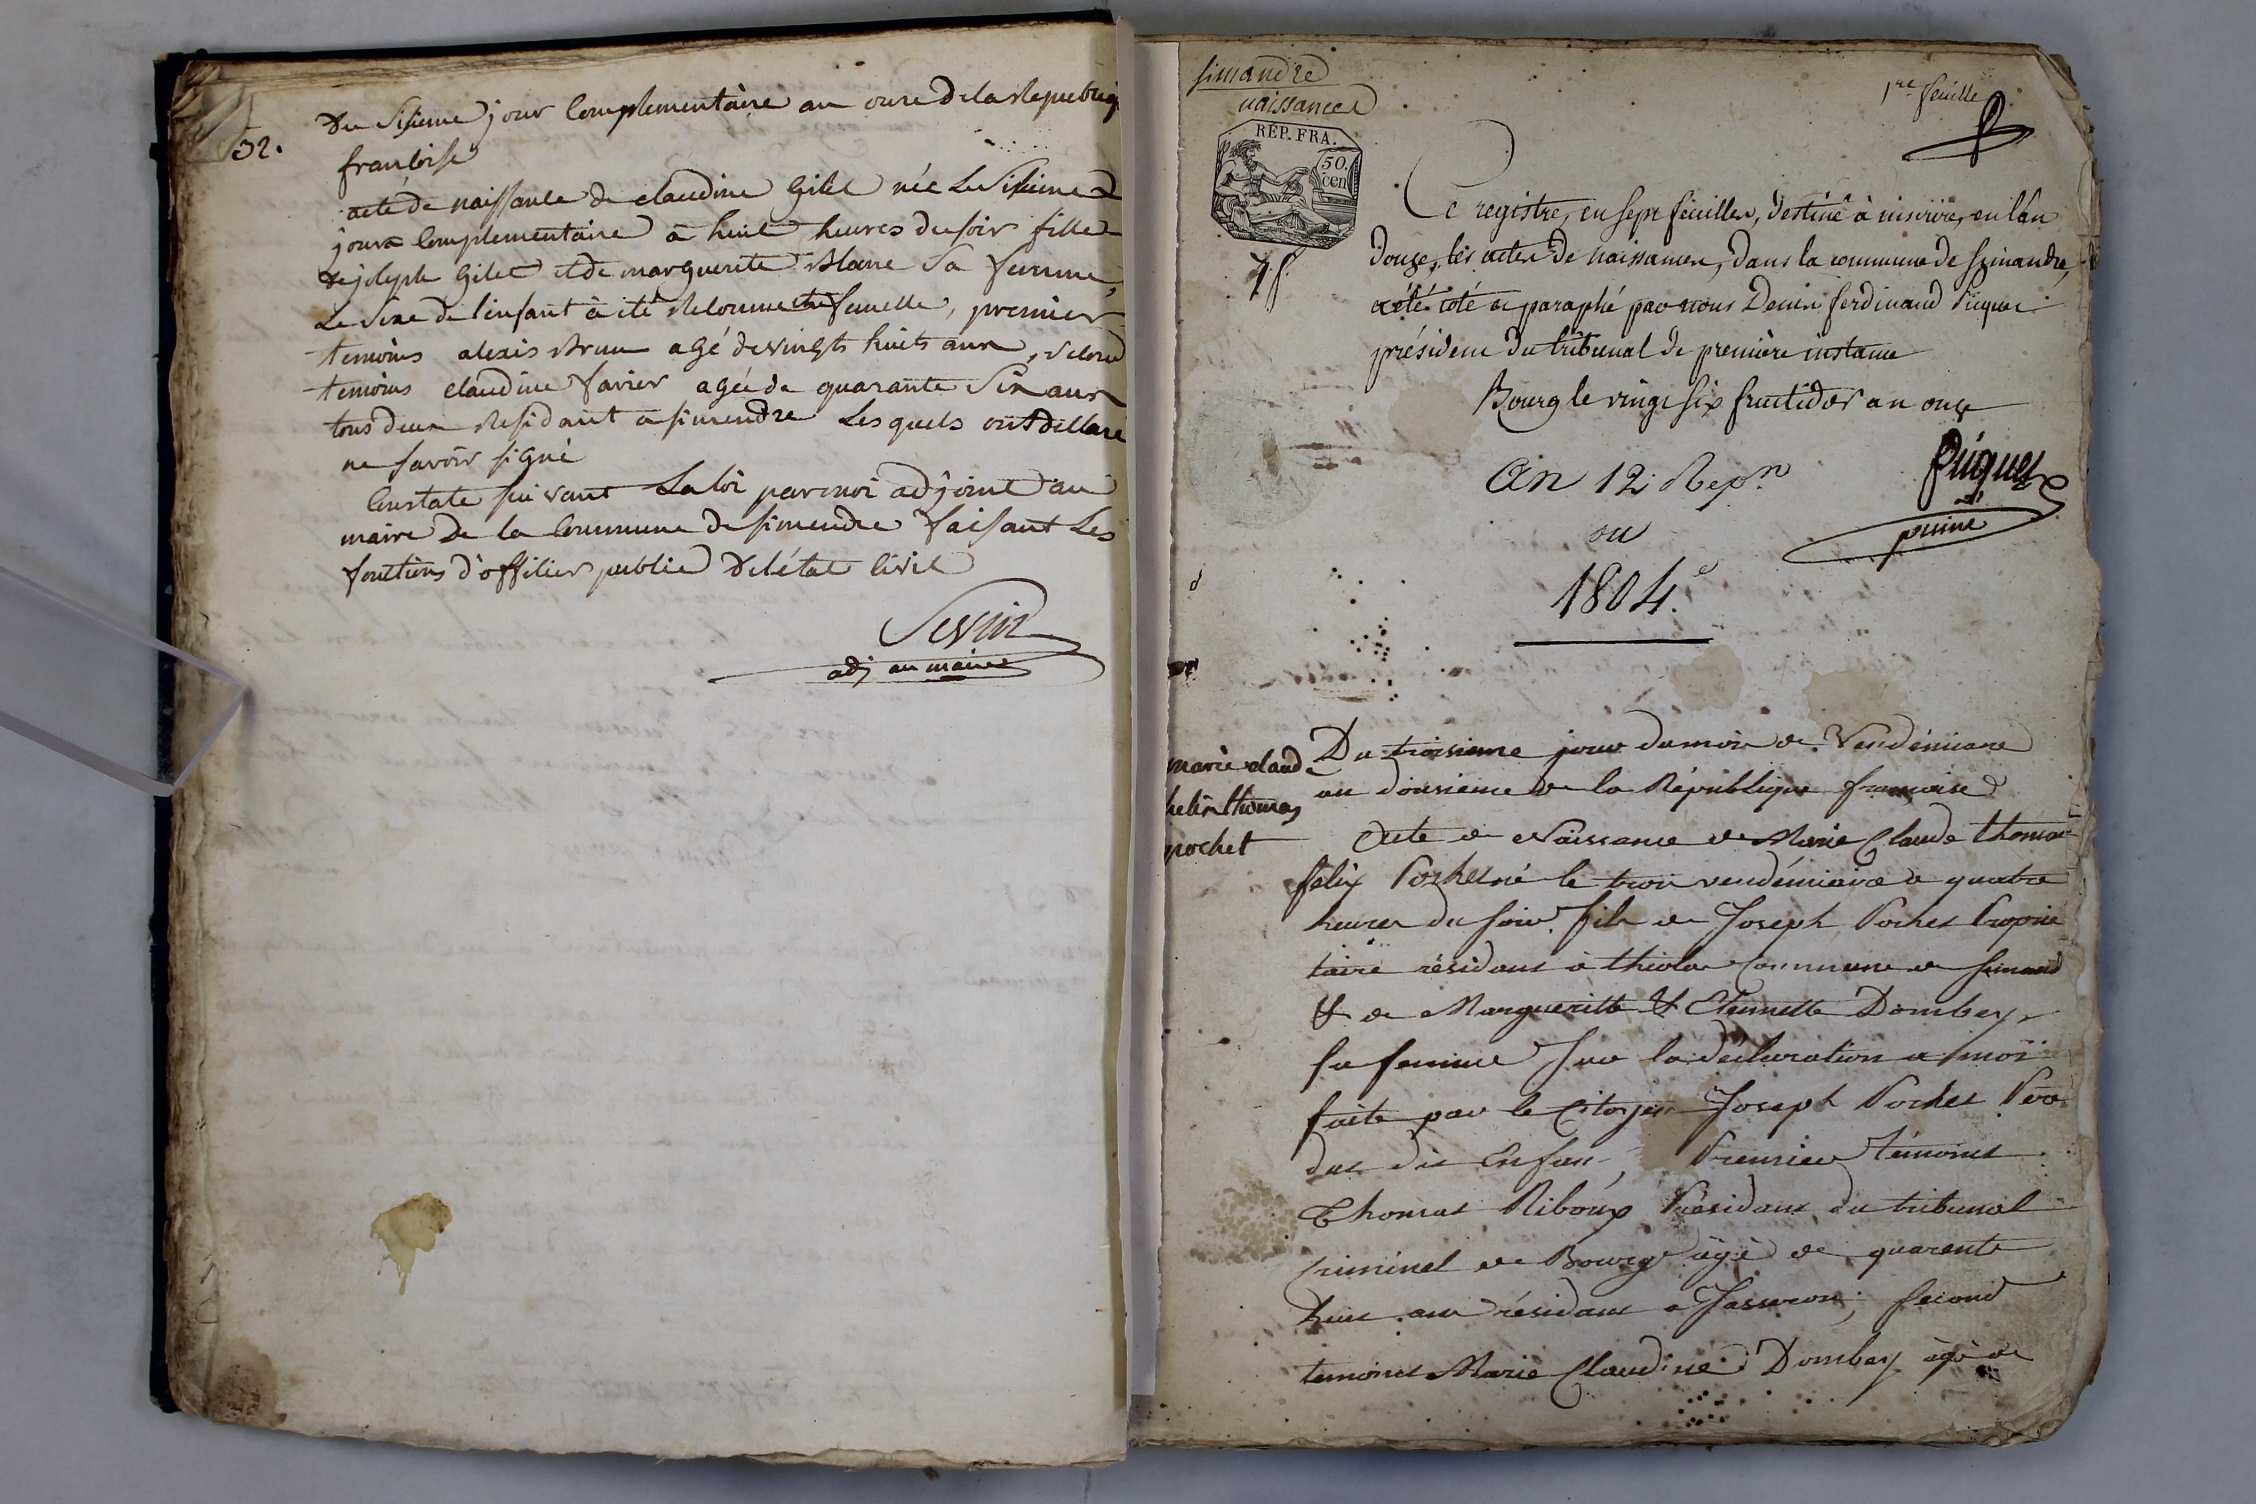 32.
Du sisieme jour Complementaire an onze de la Republiq
francoise
acte de naissance de claudine Gilet née Le Sisieme
jours Complementaire à huit heures du soir fille
de joseph Gilet et de marguerite Blanc sa femme,
Le Sexe de l'enfant à été Reconnue etre femelle, premier
temoins alexis Brun agé de vingts huits ans, second
temoins claudine favier agée de quarante Six ans
tous deux Residant a simendre Les quels ont dellare
ne savoir signé
Constate suivant La loi par moi adjoint au
maire De la Commune de simendre faisant Les
fonctions d'officier public De l'état Civil
Sevin
adj au maire
simandre
naissances
1re feuille
RÉP. FRA.
50.
cen
7 f.
Ce registre, en sept feuilles, destiné à inscrire, en l'an
douze, les actes de naissances, dans la commune de Simandre,
a été coté et paraphé par nous Denis ferdinand Picquet
président du tribunal de première instance
Bourg le vingt six fructidor an onze
Picquet
An 12 Rep.n
ou
1804.
marie claude
felix thomas
pochet
Du troisieme jour du mois de Vendémiaire
an douzieme de la République francaise
Acte de Naissance de Marie Claude thomas
félix Pochet né le trois vendémiaire a quatre
heures du soir fils de Joseph Pochet Proprie
taire résidant à thiole Commune de simand
& de Margueritte & Etiennette Dombey
sa femme Sur la déclaration a moi
faite par le Citoyen Joseph Pochet Pere
dud dit Enfant, Premier témoins
Thomas Riboux Présidant du tribunal
criminel de Bourg âgé de quarente
huit ans résidant a Jasseron; second
temoins Marie Claudine Dombey âgé de